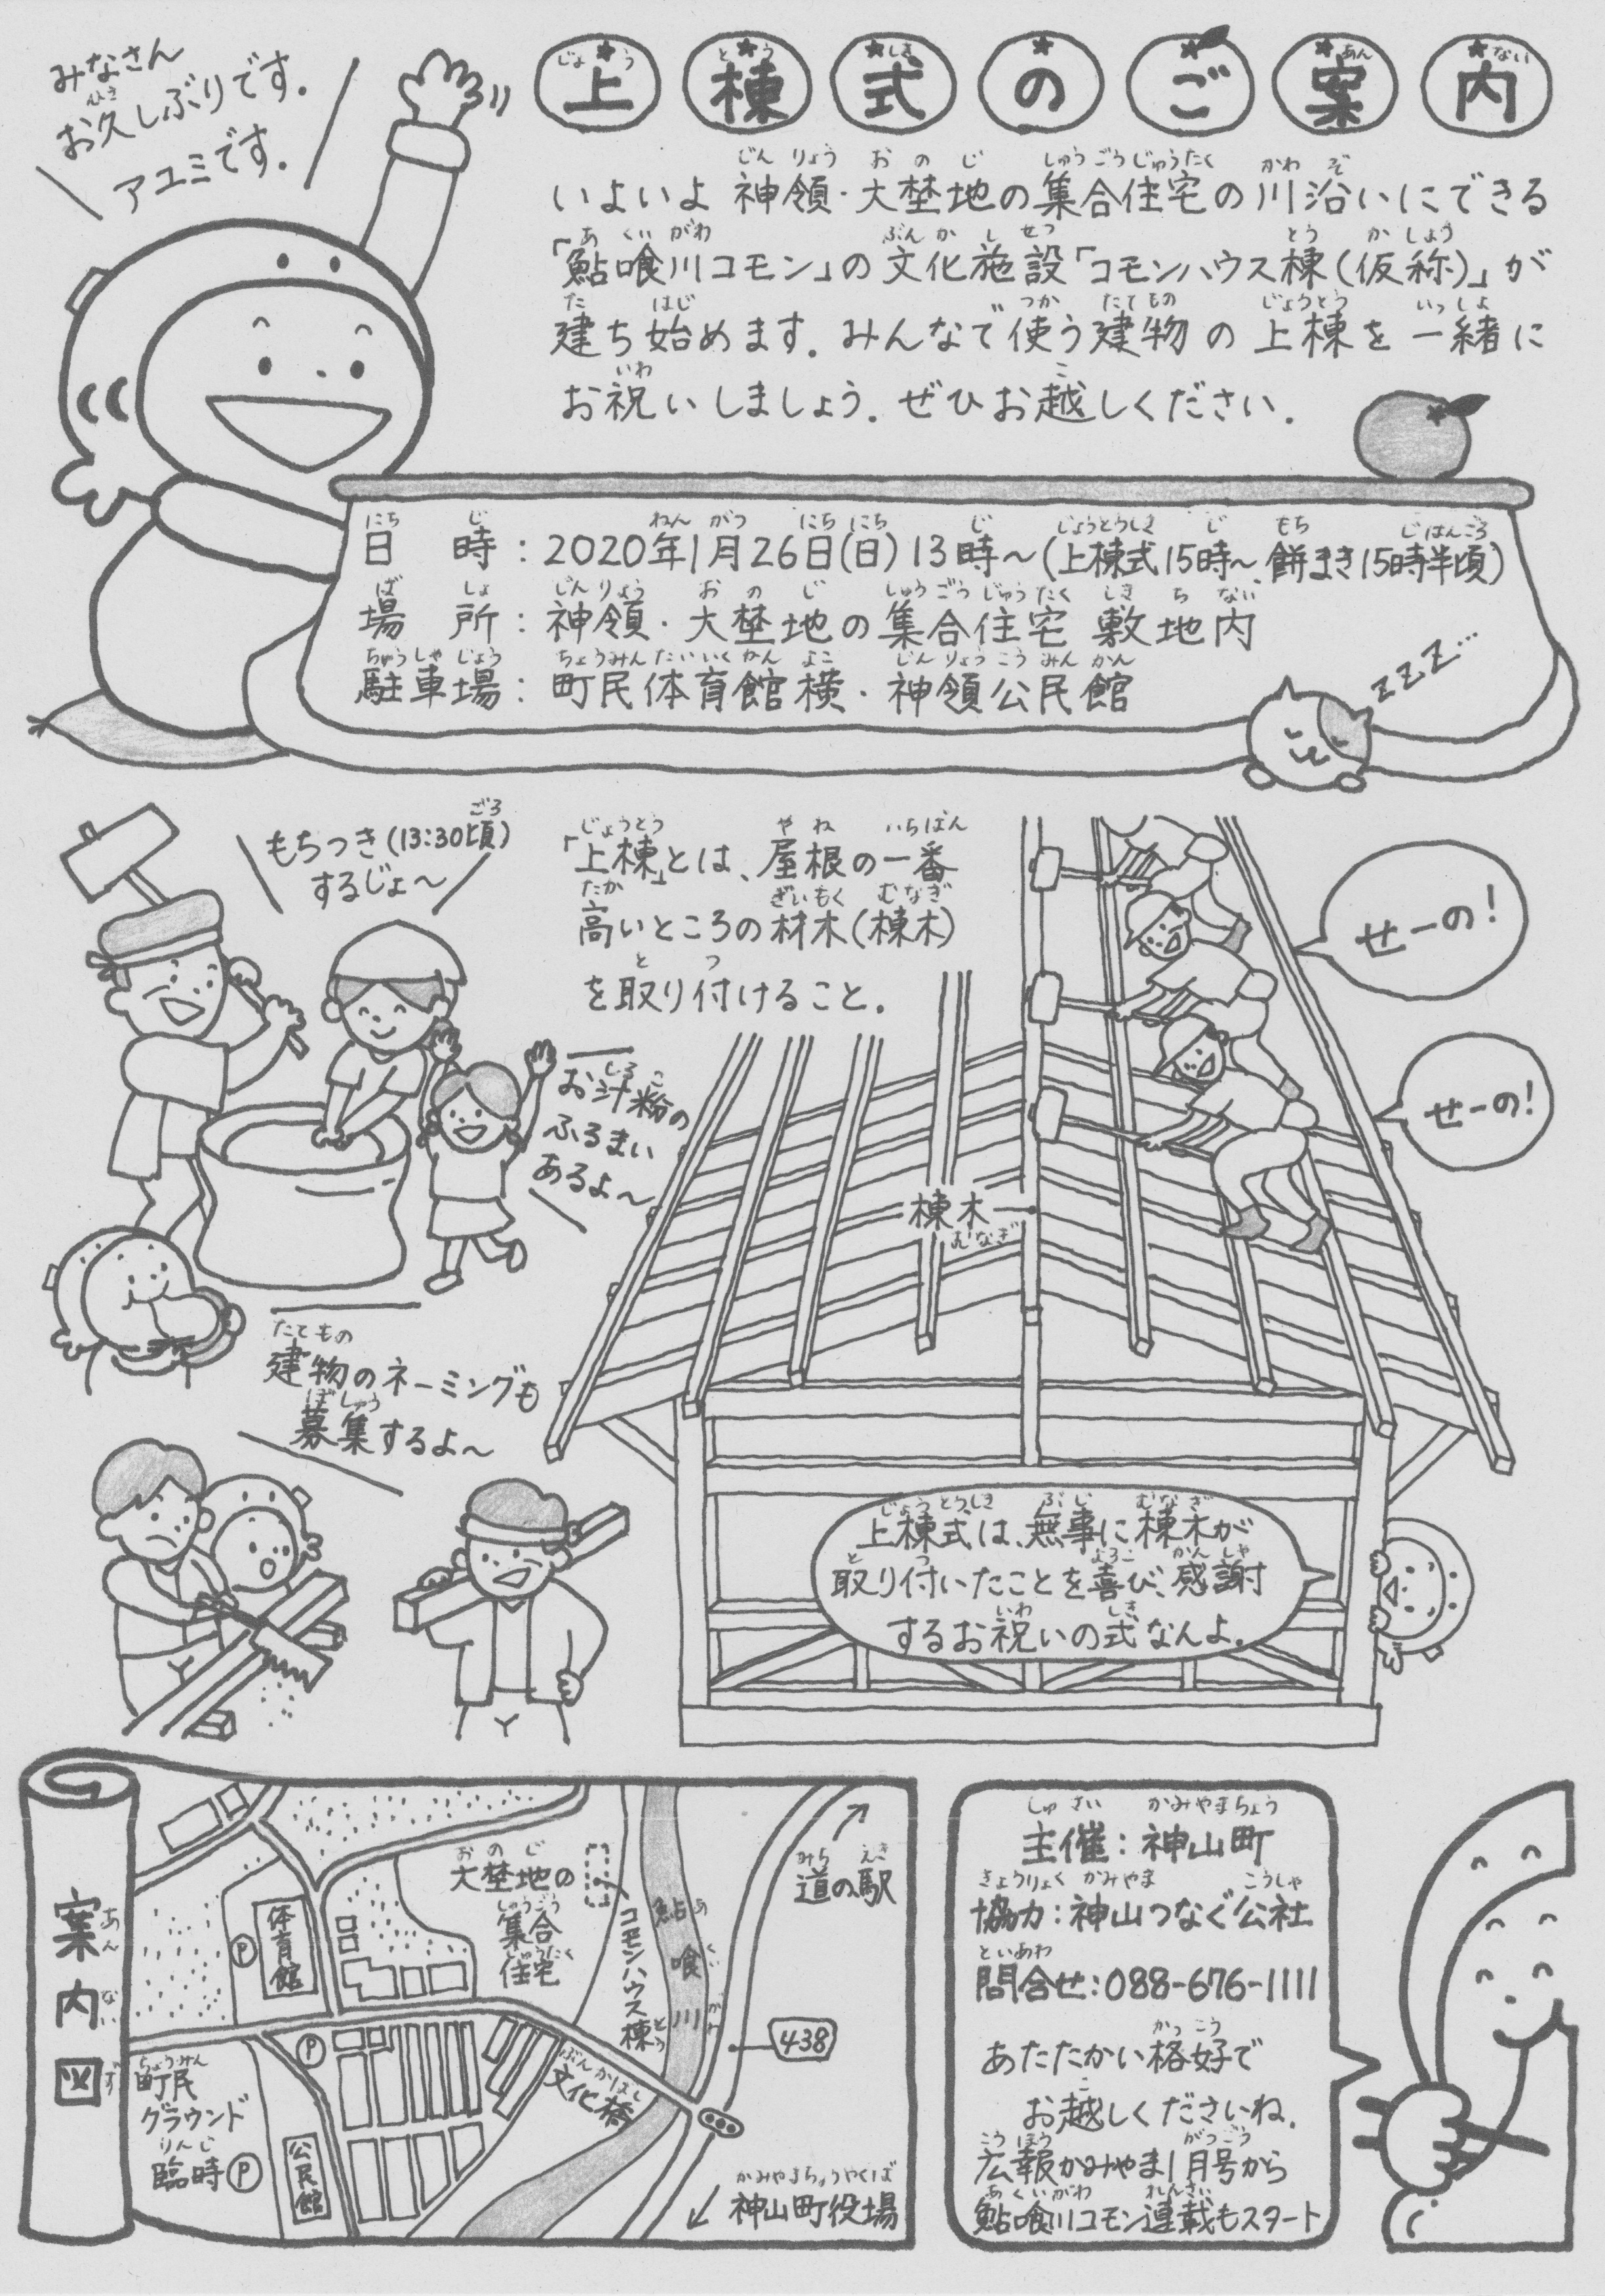 みなさん
お久しぶりです.
アユミです.
上棟式のご案内
いよいよ 神領・大埜地の集合住宅の川沿いにできる
「鮎喰川コモン」の文化施設「コモンハウス棟(仮称)」が
建ち始めます. みんなで使う建物の上棟を一緒に
お祝いしましょう. ぜひお越しください.
日時: 2020年1月26日(日) 13時〜(上棟式15時〜、餅まき15時半頃)
場所: 神領・大埜地の集合住宅 敷地内
駐車場: 町民体育館横・神領公民館
ZZZ...
もちつき(13:30頃)
するじょ〜
「上棟」とは、屋根の一番
高いところの材木(棟木)
を取り付けること.
せーの!
せーの!
お汁粉の
ふるまい
あるよ〜
棟木
建物のネーミングも
募集するよ〜
上棟式は、無事に棟木が
取り付いたことを喜び、感謝
するお祝いの式なんよ.
案内図
大埜地の
集合
住宅
コモンハウス棟
鮎喰川
道の駅
438
体育館
P
P
文化橋
町民
グラウンド
臨時P
公民館
神山町役場
主催: 神山町
協力: 神山つなぐ公社
問合せ: 088-676-1111
あたたかい格好で
お越しくださいね.
広報かみやま1月号から
鮎喰川コモン連載もスタート